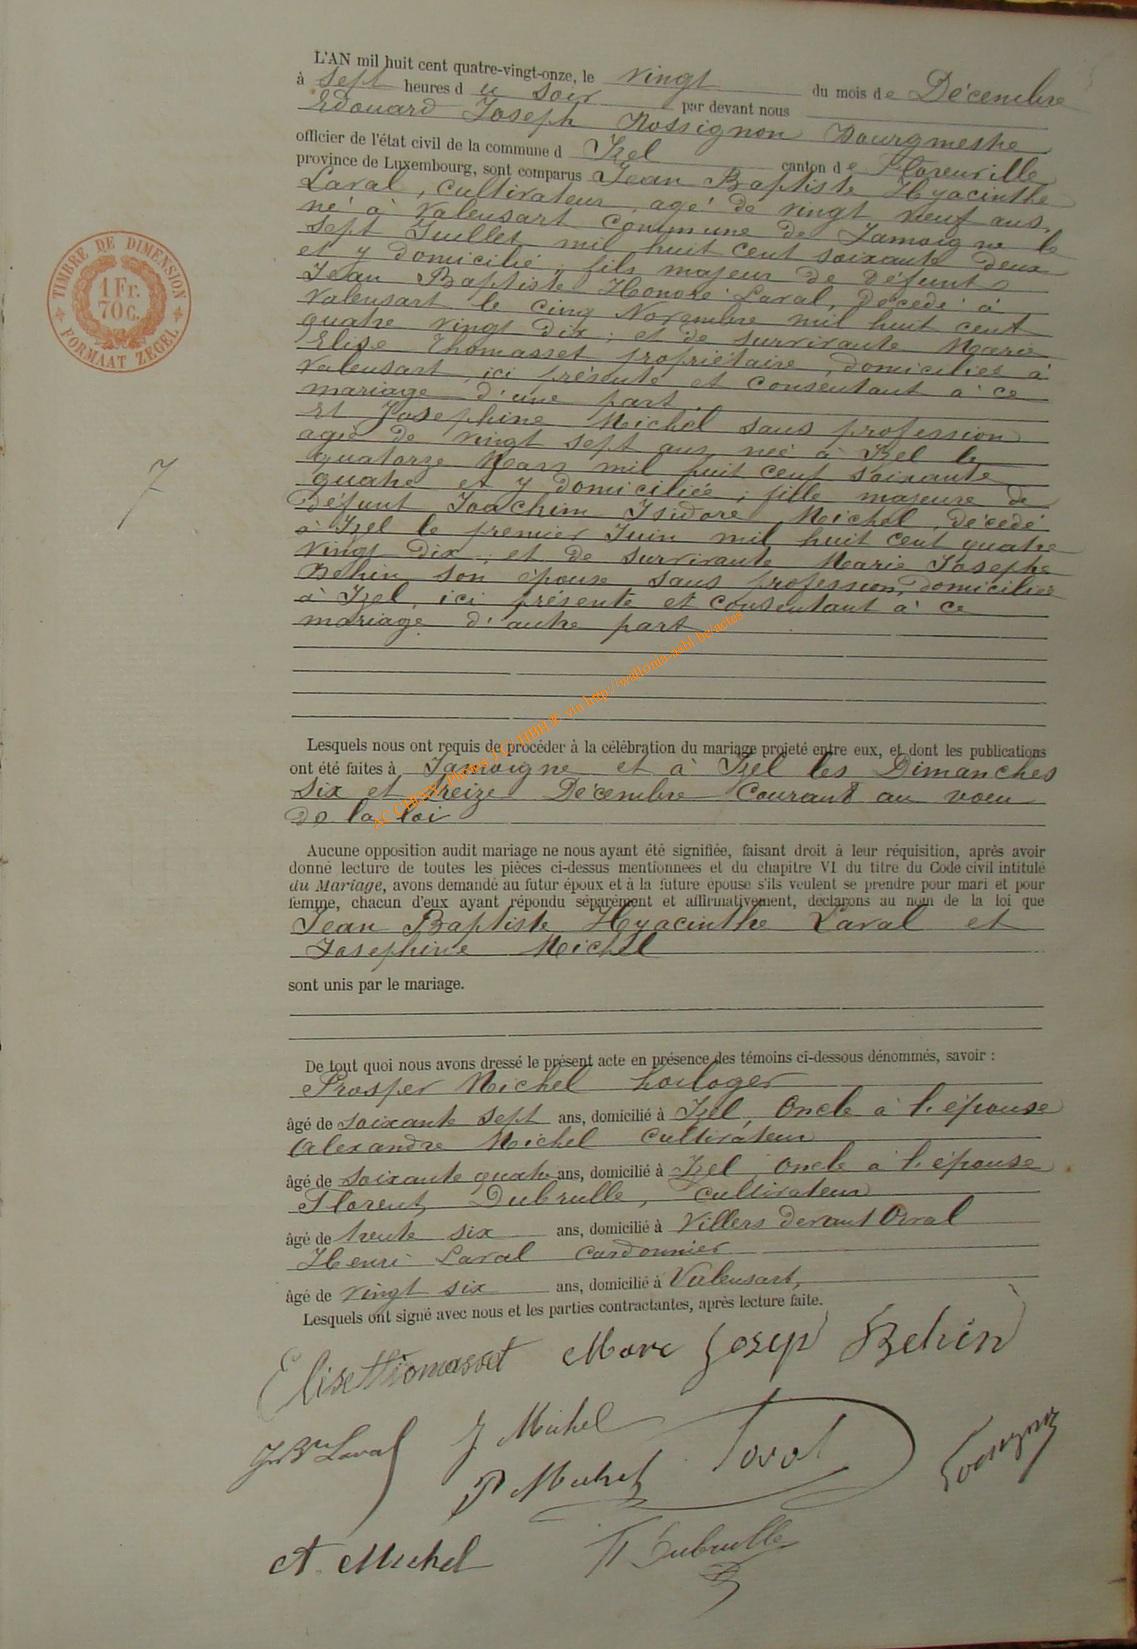 L'AN mil huit cent quatre-vingt-onze, le vingt du mois de Décembre
à sept heures du soir par devant nous
Edouard Joseph Rossignon Bourgmestre
officier de l'état civil de la commune d Izel canton de Florenville
province de Luxembourg, sont comparus Jean Baptiste Hyacinthe
Laval, cultivateur, agé de vingt neuf ans,
né à Valensart commune de Jamoigne le
sept Juillet mil huit cent soixante deux
et y domicilié, fils majeur de défunt
Jean Baptiste Honoré Laval, décédé à
Valensart le cinq Novembre mil huit cent
quatre vingt dix ; et de survivante Marie
Elise Thomasset propriétaire, domiciliée à
Valensart, ici présente et consentant à ce
mariage d'une part.
Et Josephine Michel sans profession
agée de vingt sept ans née à Izel le
quatorze Mars mil huit cent soixante
quatre et y domiciliée ; fille majeure de
défunt Joachim Isidore Michel, décédé
à Izel le premier Juin mil huit cent quatre
vingt dix ; et de survivante Marie Josephe
Behin son épouse sans profession, domiciliée
à Izel, ici présente et consentant à ce
mariage d'autre part
Lesquels nous ont requis de procéder à la célébration du mariage projeté entre eux, et dont les publications
ont été faites à Jamoigne et à Izel les Dimanches
six et treize Décembre courant au voeu
de la loi
Aucune opposition audit mariage ne nous ayant été signifiée, faisant droit à leur réquisition, après avoir
donné lecture de toutes les pièces ci-dessus mentionnées et du chapitre VI du titre du Code civil intitulé
du Mariage, avons demandé au futur époux et à la future épouse s'ils veulent se prendre pour mari et pour
femme, chacun d'eux ayant répondu séparément et affirmativement, déclarons au nom de la loi que
Jean Baptiste Hyacinthe Laval et
Josephine Michel
sont unis par le mariage.
De tout quoi nous avons dressé le présent acte en présence des témoins ci-dessous dénommés, savoir :
Prosper Michel horloger
âgé de soixante sept ans, domicilié à Izel, Oncle à l'épouse
Alexandre Michel cultivateur
âgé de soixante quatre ans, domicilié à Izel, oncle à l'épouse
Florent Dubrulle, cultivateur
âgé de trente six ans, domicilié à Villers devant Orval
Henri Laval cordonnier
âgé de vingt six ans, domicilié à Valensart,
Lesquels ont signé avec nous et les parties contractantes, après lecture faite.
Elise Thomasset Mare Josep Behin
Jn Bte Laval J Michel Laval Rossignon
P Michel
A. Michel F Dubrulle
TIMBRE DE DIMENSION
1 Fr.
70 c.
FORMAAT ZEGEL
7